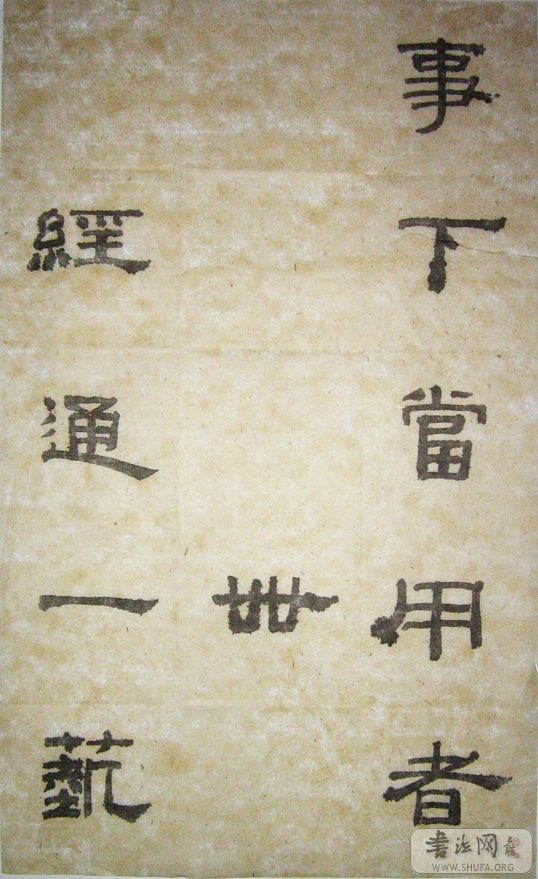 事下當用者
卌
經通一藝
書法网
WWW.SHUFA.ORG